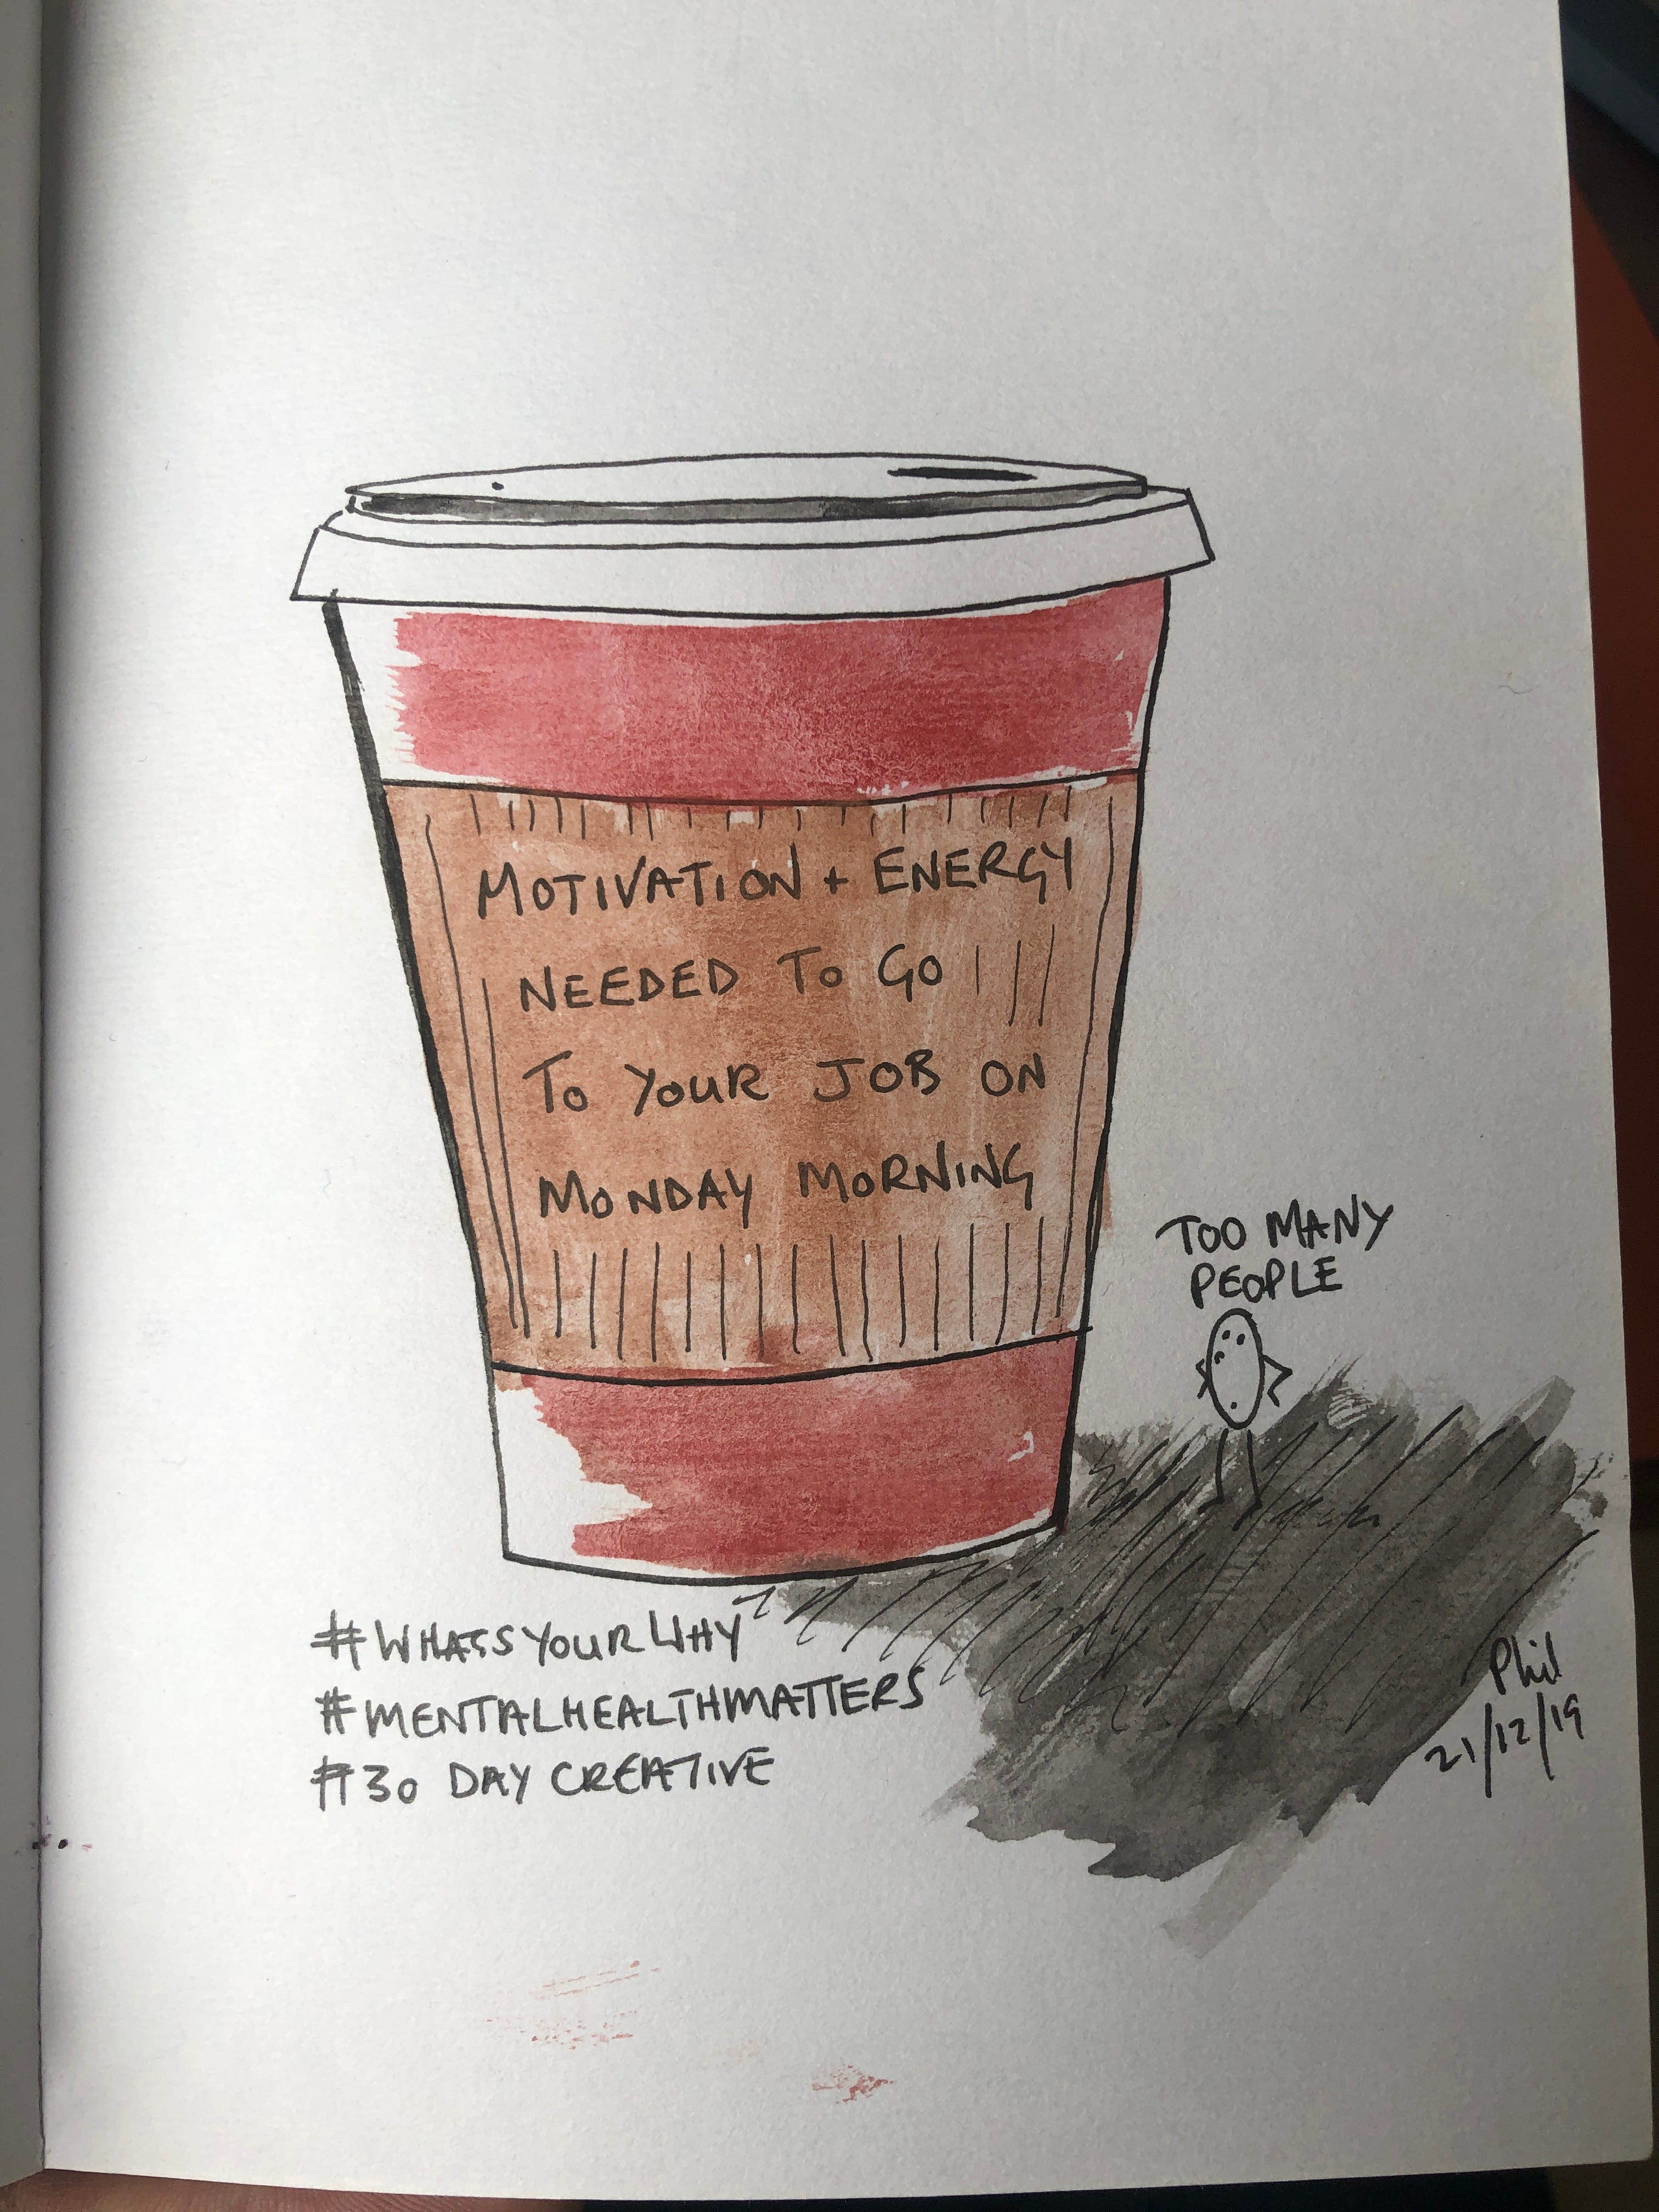 MOTIVATION + ENERGY
NEEDED TO GO
TO YOUR JOB ON
MONDAY MORNING
TOO MANY
PEOPLE
#WHATSYOURWHY
#MENTALHEALTHMATTERS
#30 DAY CREATIVE
Phil
21/12/19